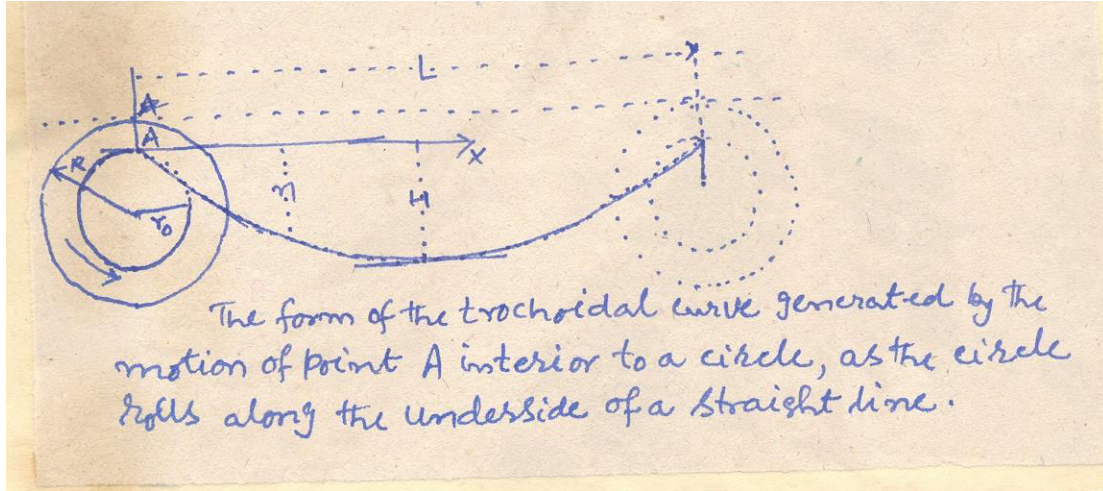 L
A
A
R
x
η
H
r₀
The form of the trochoidal curve generated by the
motion of point A interior to a circle, as the circle
rolls along the underside of a straight line.